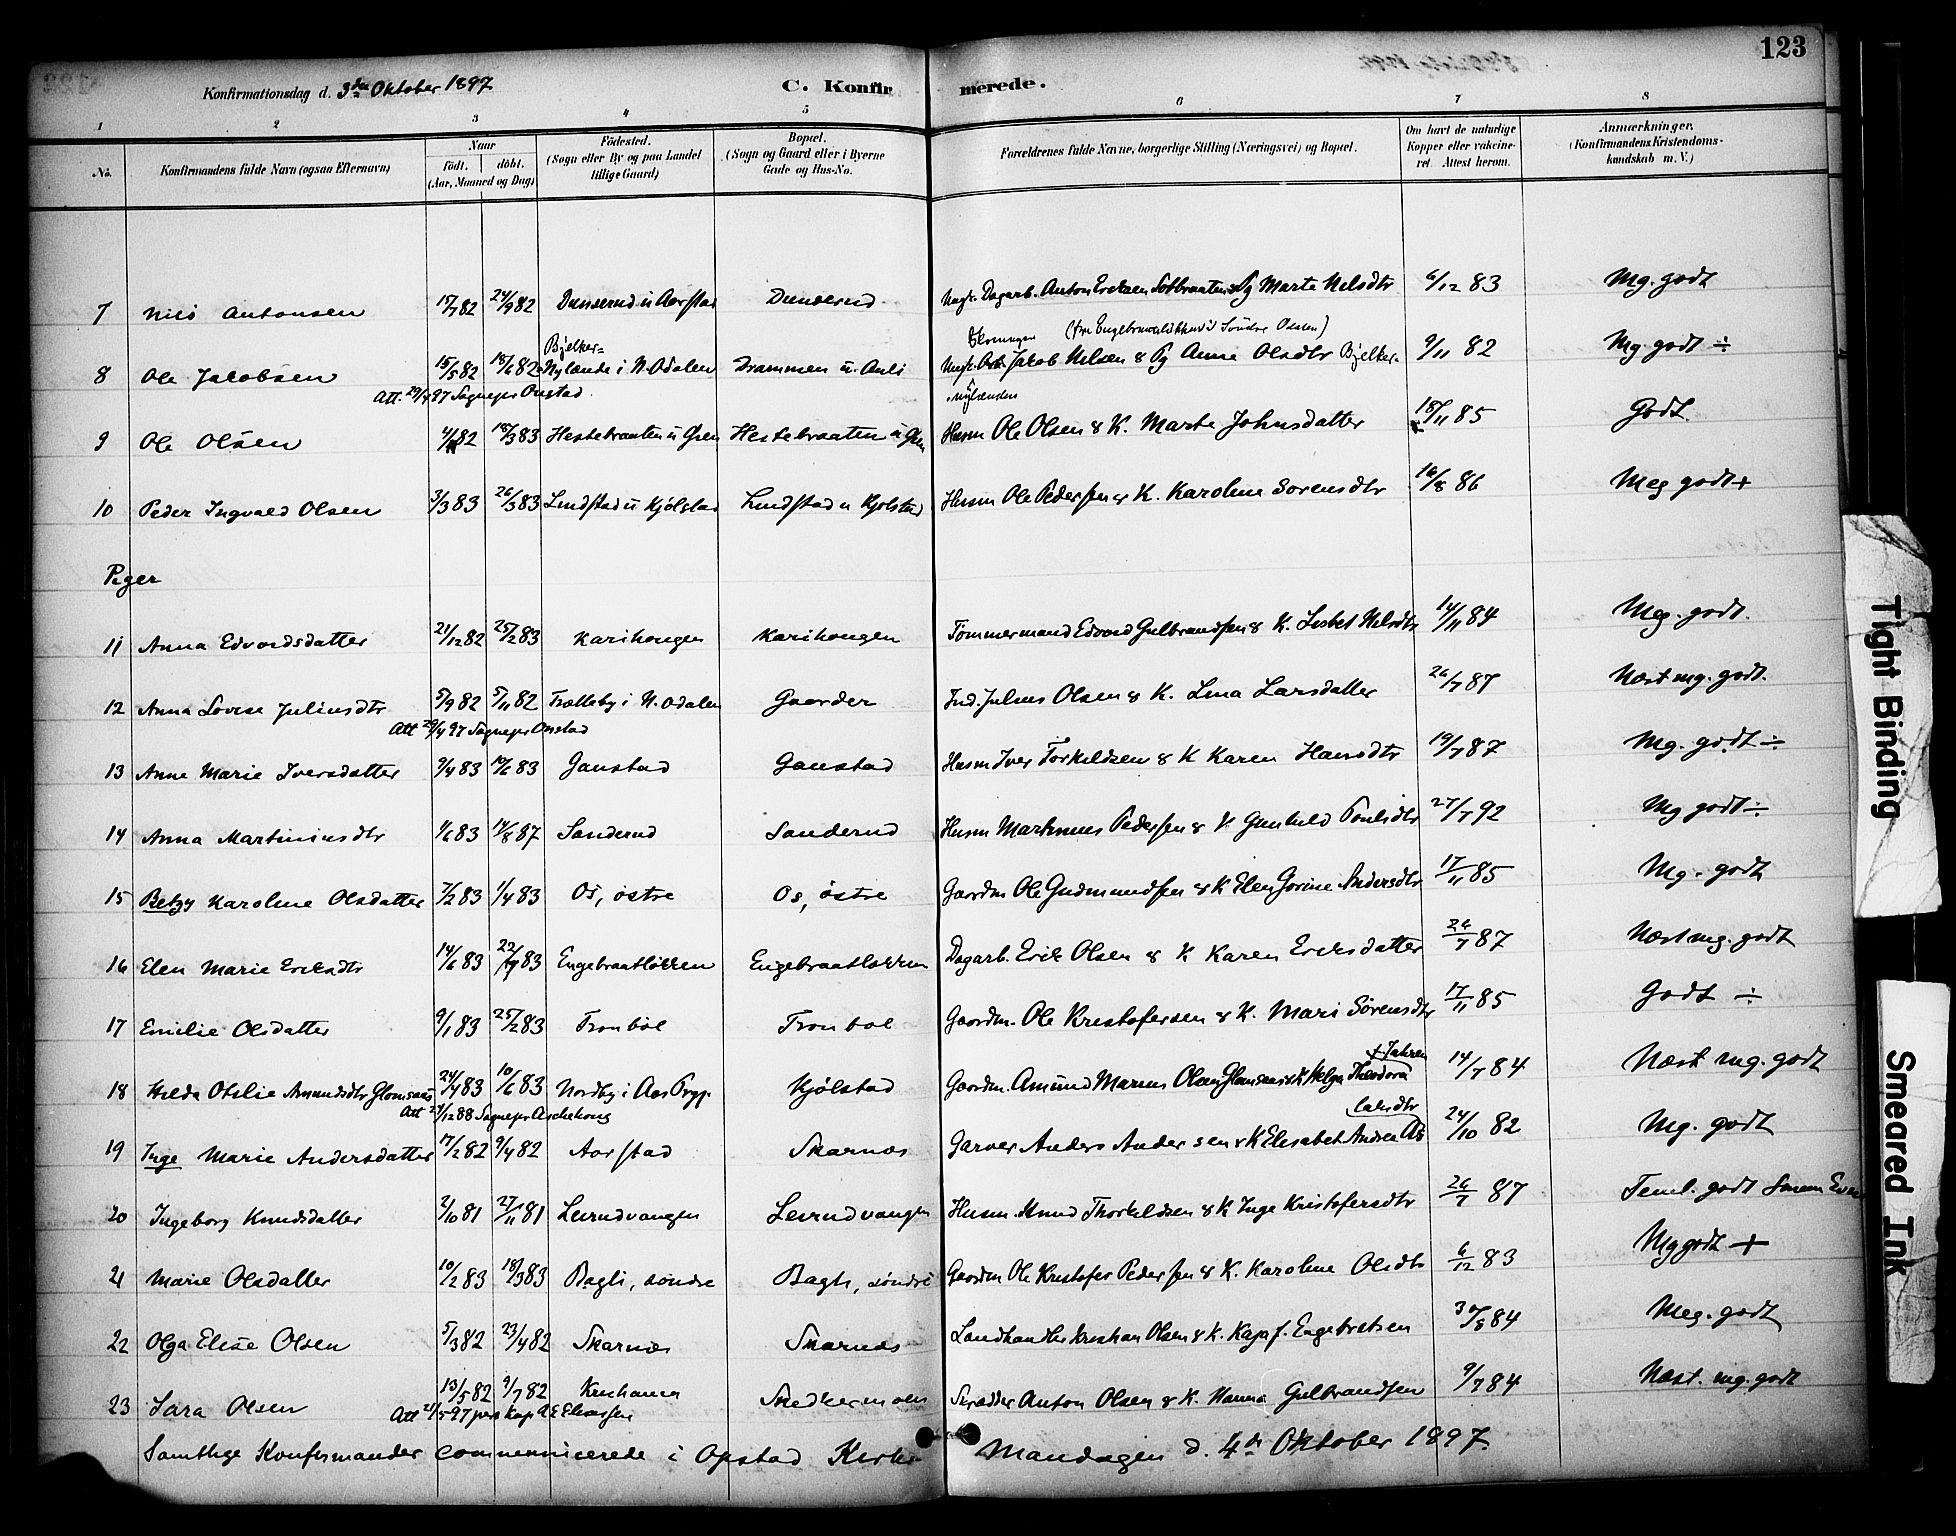 123
Konfirmationsdag d. 3die Oktober 1897 C. Konfirmerede.
1 2 3 4 5 6 7 8
No. Konfirmandens fulde Navn (ogsaa Efternavn) Naar født. døbt. (Aar, Maaned og Dag) Fødested. (Sogn eller By og paa Landet tillige Gaard) Bopæl. (Sogn og Gaard eller i Byerne Gade og Hus-No. Forældrenes fulde Navne, borgerlige Stilling (Næringsvei) og Bopæl. Om havt de naturlige Kopper eller vaccineret. Attest herom. Anmærkninger. (Konfirmandens Kristendomskundskab m. V.)
7 Nils Antonsen 15/7 82 24/9 82 Dunserud u Aorstad Dunserud Ungk. Dagarb. Anton Eriksen & Pg Marte Nelsdtr 6/12 83 Mg. godt
8 Ole Jacobsen 15/5 82 18/6 82 Bjelker=Nylænde i N. Odalen Drammen u. Auli Ungk. Jakob Nilsen & Pg Anne Olsdtr Bjelker-nylænden 9/11 82 Mg. godt ÷
Att. 29/4 97 Sognepr Onstad
9 Ole Olsen 82 18/3 83 Hestebraaten u Gren Hestebraaten u Gren Husm Ole Olsen & K. Marte Johnsdatter 18/11 85 Godt
10 Peder Ingvald Olsen 3/3 83 26/3 83 Lundstad u Kjölstad Lundstad u Kjolstad Husm Ole Pedersen & K. Karoline Sorensdtr 16/8 86 Meg godt +
Piger
11 Anna Edvardsdatter 21/12 82 25/2 83 Karihougen Karihougen Tommermand Edvard Gulbrandsen & K. Lisbet Nilsdtr 14/11 84 Meg. godt.
12 Anna Lovise Juliusdtr 5/9 82 5/11 82 Trælleby i N. Odalen Gaarder Ind. Julius Olsen & K. Lina Larsdatter 26/7 87 Næst mg. godt.
Att 29/4 97 Sognepr Onstad
13 Anne Marie Iversdatter 9/4 83 83 Ganstad Ganstad Husm Iver Torkildsen & K Karen Hansdtr 19/7 87 Mg. godt ÷
14 Anna Martiniusdtr 1/6 83 14/8 87 Sanderud Sanderud Husm Martinius Pedersen & K Gunhild Poulsdtr 27/7 92 Mg godt ÷
15 Betzy Karoline Olsdatter 7/2 83 1/4 83 Os, östre Os, östre Gaardm Ole Gudmundsen & K Elen Gorine Andersdtr 17/11 85 Mg. godt
16 Elen Marie Eriksdtr 14/6 83 22/7 83 Engebraatløkken Engebraatløkken Dagarb. Erik Olsen & K Karen Eriksdatter 26/7 87 Næst mg. godt
17 Emilie Olsdatter 9/1 83 25/2 83 Tronbøl Tronbøl Gaardm. Ole Kristofersen & K. Mari Sörensdtr 17/11 85 Godt ÷
18 Hilda Otilie Amundsdtr Glomsaas 24/4 83 10/6 83 Nordby i Aas Prgj. Kjölstad Gaardm. Amund Marius Olsen Glomsaas & K Helga Theodora 14/7 84 Næst mg. godt
Att 12 88 Sognepr Aschehoug
19 Inge Marie Andersdatter 17/2 82 9/4 82 Aorstad Skarnæs Garver Anders Andersen & K Elisabet Andrea 24/10 82 Mg. godt
20 Ingeborg Knudsdatter 2/10 81 27/11 81 Leirudvangen Leirudvangen Husm. Knud Thorkildsen & K Inge Kristofersdtr 26/7 87 Teml. godt
21 Marie Olsdatter 10/2 83 18/3 83 Bagli, söndre Bagli, söndre Gaardm Ole Kristofer Pedersen & K. Karoline Olsdtr 6/12 83 Mg godt +
22 Olga Elise Olsen 5/3 82 23/4 82 Skarnæs Skarnæs Landhandler Kristian Olsen & K. Kaja f. Engebretsen 84 Meg. godt
23 Sara Olsen 13/5 82 9/7 82 Kristiania Snedkermoen Skrædder Anton Olsen & K. Hanna Gulbrandsen 9/7 84 Næst. mg. godt
Samtlige Konfirmander communicerede i Opstad Kirke Mandagen d. 4de Oktober 1897.
Tight Binding
Smeared Ink